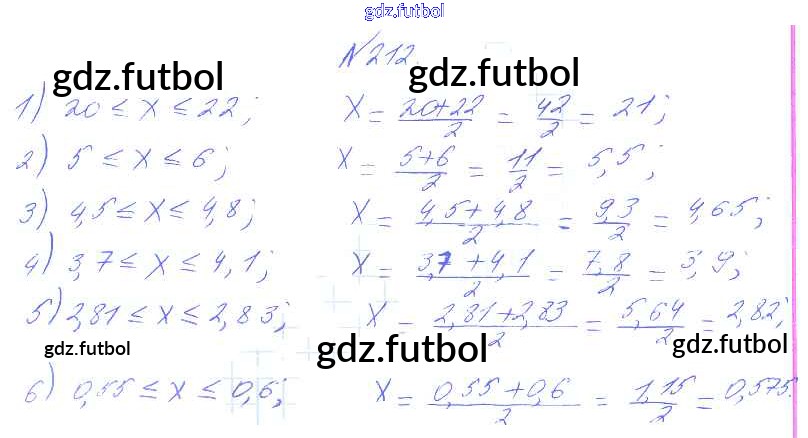 gdz.futbol
№212.
gdz.futbol gdz.futbol
1) 20 ≤ x ≤ 22; x = (20+22)/2 = 42/2 = 21;
2) 5 ≤ x ≤ 6; x = (5+6)/2 = 11/2 = 5,5;
3) 4,5 ≤ x ≤ 4,8; x = (4,5+4,8)/2 = 9,3/2 = 4,65;
4) 3,7 ≤ x ≤ 4,1; x = (3,7+4,1)/2 = 7,8/2 = 3,9;
5) 2,81 ≤ x ≤ 2,83; x = (2,81+2,83)/2 = 5,64/2 = 2,82;
gdz.futbol gdz.futbol gdz.futbol
6) 0,55 ≤ x ≤ 0,6; x = (0,55+0,6)/2 = 1,15/2 = 0,575.